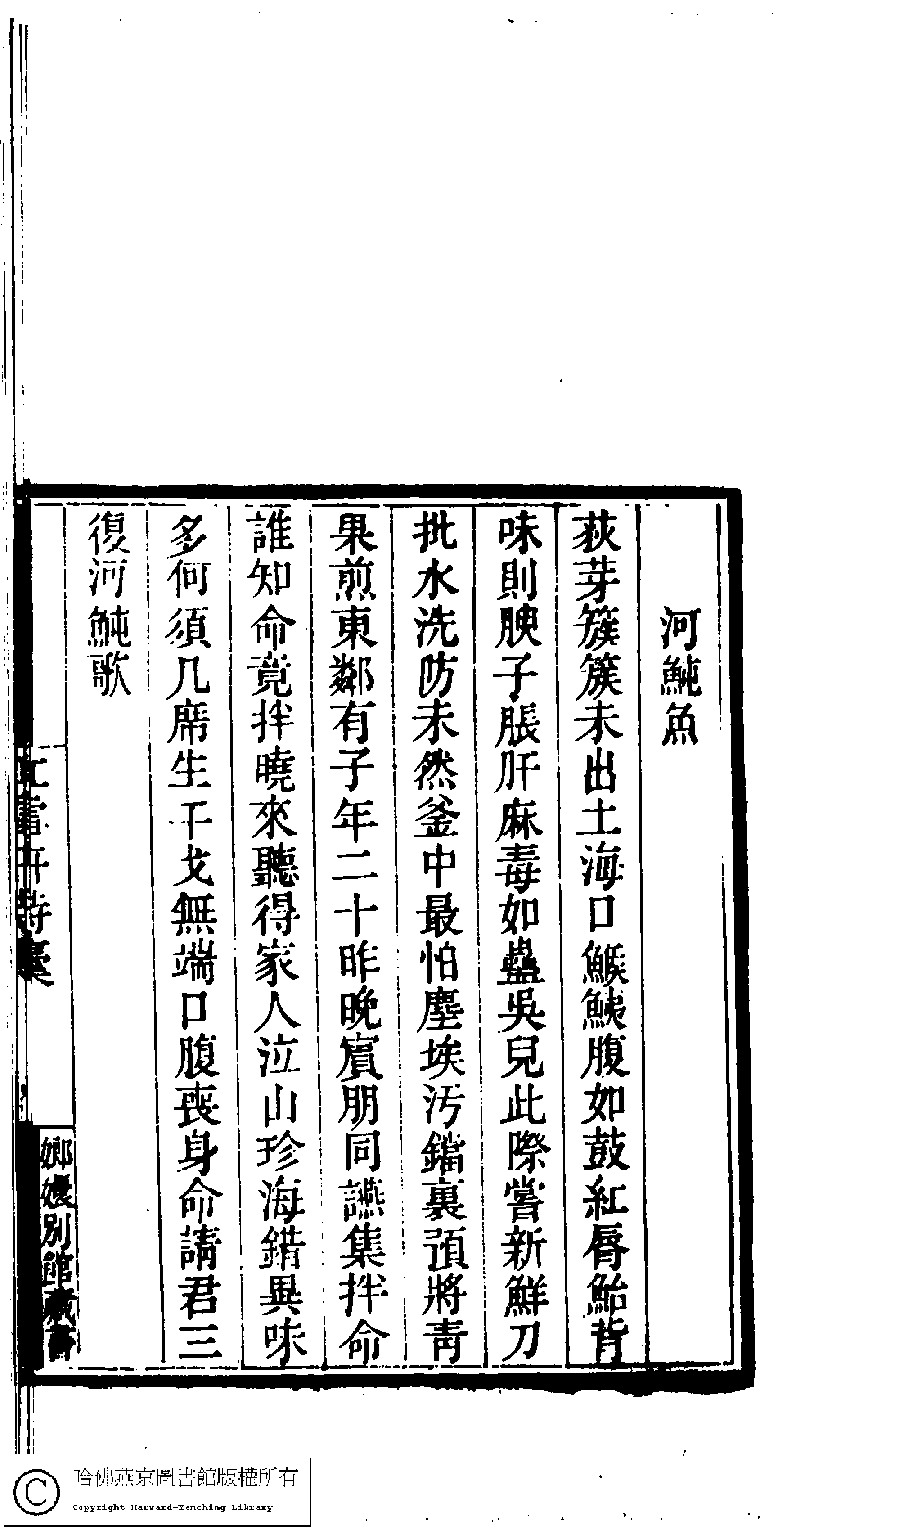 河魨魚
荻芽簇簇未出土海口鯸鮧腹如鼓紅脣鮐背
味則腴子脹肝麻毒如蠱吳兒此際嘗新鮮刀
批水洗防未然釜中最怕塵埃汚鐺裏預將靑
果煎東鄰有子年二十昨晚賓朋同讌集拌命
誰知命竟拌曉來聽得家人泣山珍海錯異味
多何須几席生干戈無端口腹喪身命請君三
復河魨歌
紅雪軒詩藁
嫏嬛別館藏書
哈佛燕京圖書館版權所有
Copyright Harvard-Yenching Library